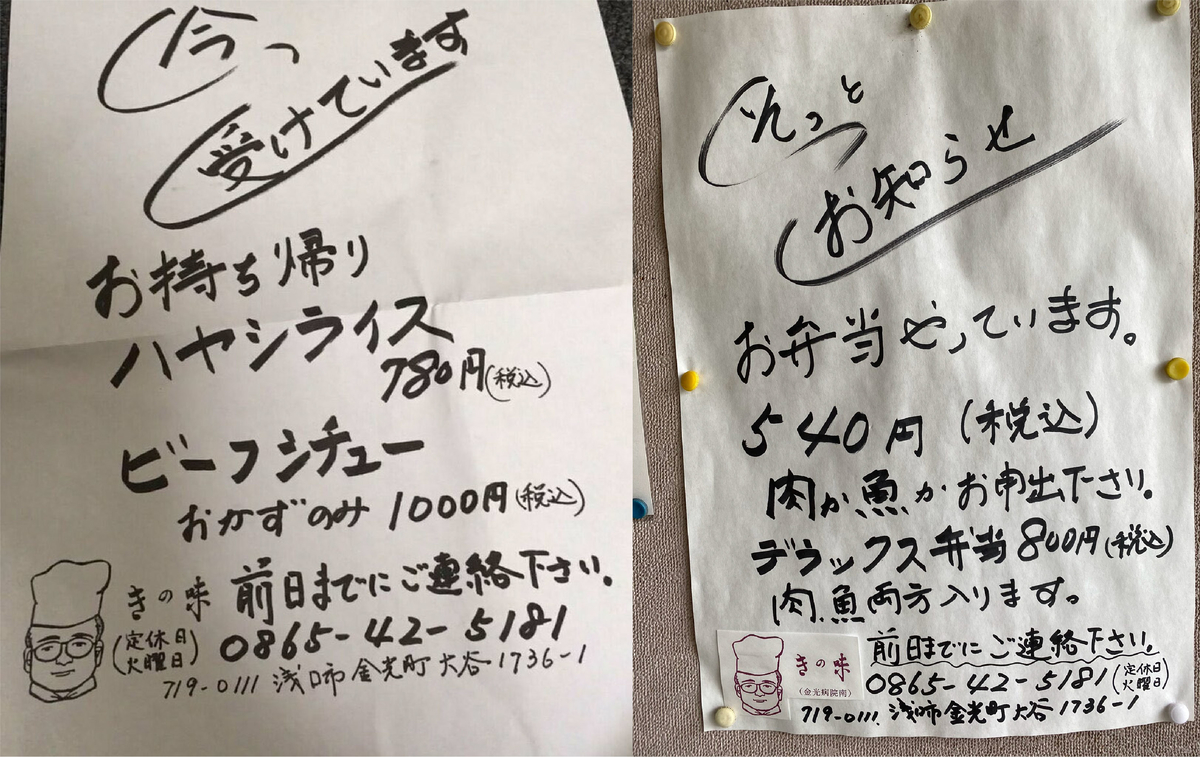 今っ
受けています
お持ち帰り
ハヤシライス
780円(税込)
ビーフシチュー
おかずのみ 1000円(税込)
きの味 前日までにご連絡下さい。
(定休日
火曜日) 0865-42-5181
719-0111 浅口市金光町大谷1736-1
そっと
お知らせ
お弁当やっています。
540円 (税込)
肉か魚かお申出下さい。
デラックス弁当800円(税込)
肉.魚両方入ります。
きの味
(金光病院南)
前日までにご連絡下さい。
0865-42-5181(定休日
火曜日)
719-0111. 浅口市金光町大谷1736-1